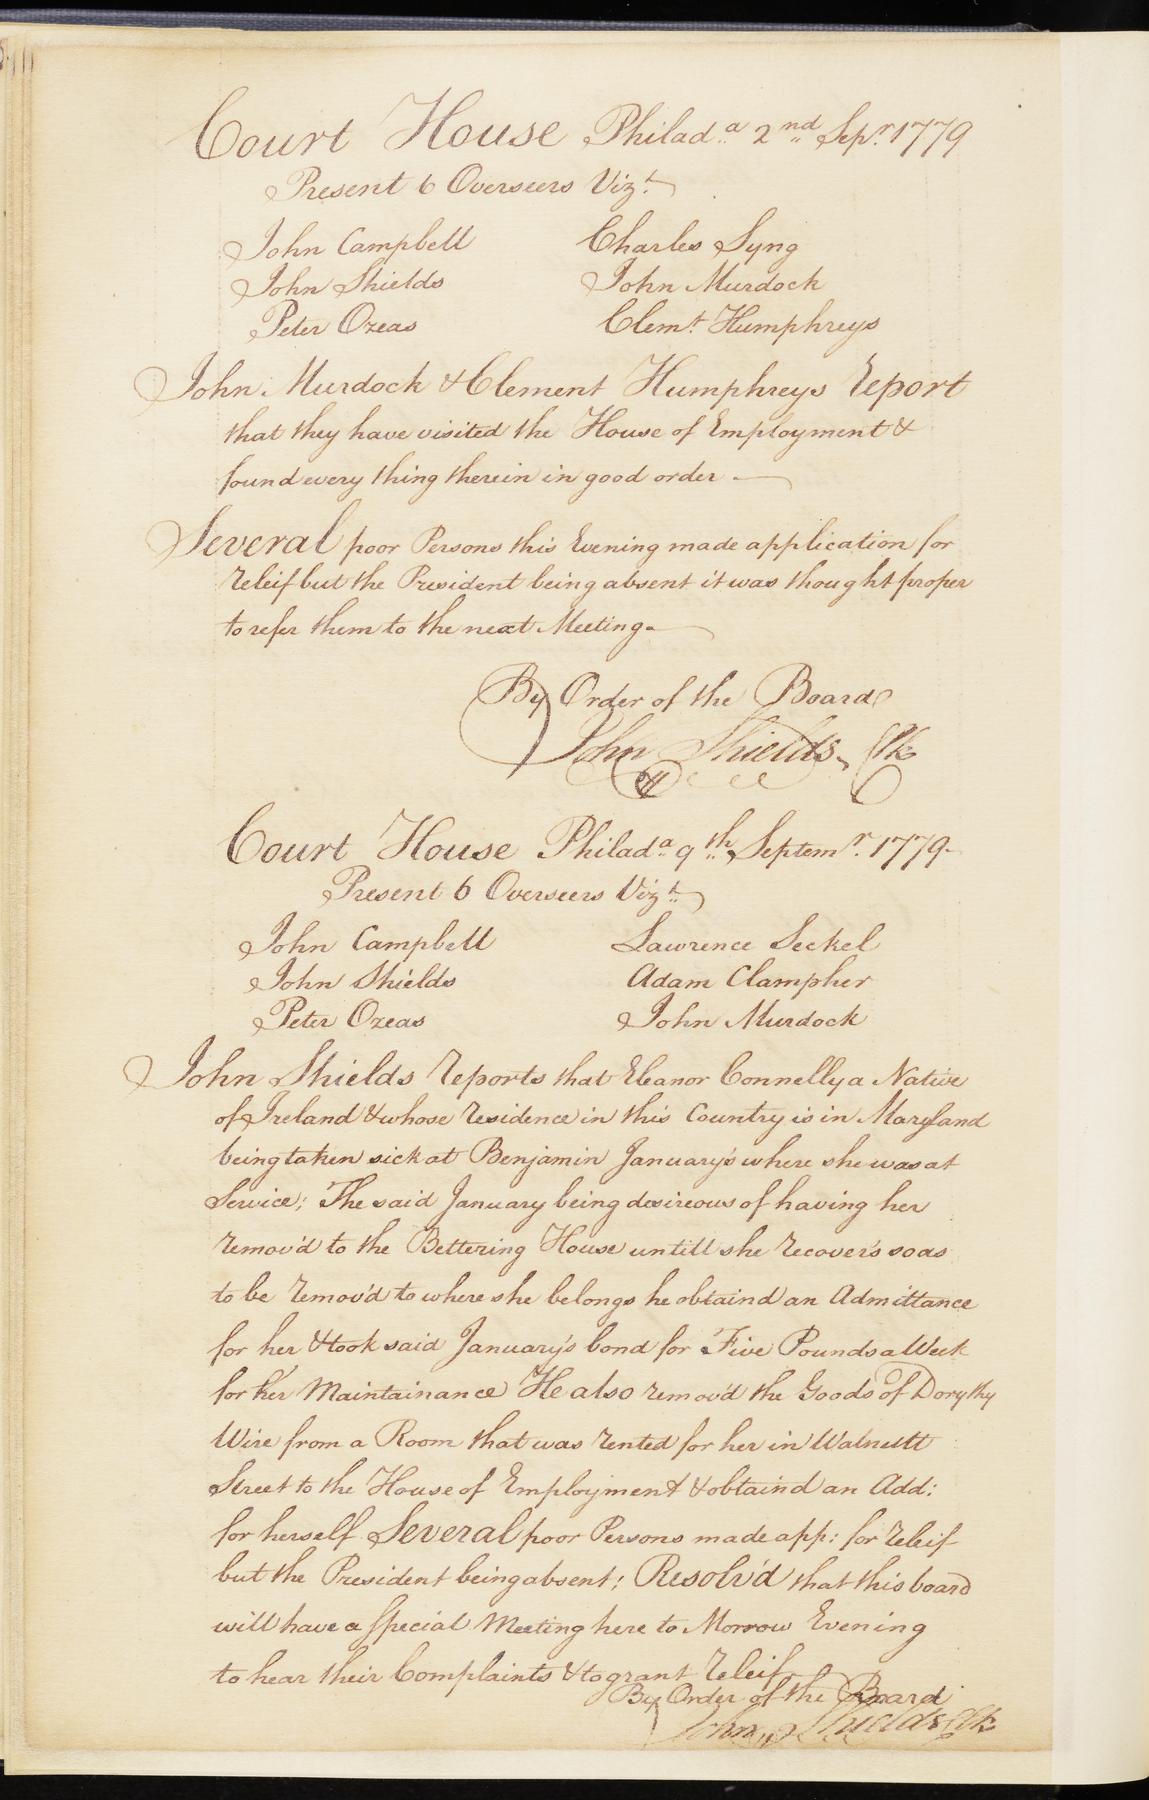 Court House Philada 2nd Sepr 1779
Present 6 Overseers Vizt
John Campbell Charles Syng
John Shields John Murdock
Peter Ozeas Clemt Humphreys
John Murdock & Clement Humphreys Report
that they have visited the House of Employment &
found every thing therein in good order
Several poor Persons this Evening made application for
Releif but the President being absent it was thought proper
to refer them to the next Meeting
By Order of the Board
John Shields, Clk
Court House Philada 9th Septemr 1779
Present 6 Overseers Vizt
John Campbell Lawrence Seckel
John Shields Adam Clampher
Peter Ozeas John Murdock
John Shields Reports that Eleanor Connelly a Native
of Ireland & whose residence in this Country is in Maryland
being taken sick at Benjamin January's where she was at
Service; The said January being desireous of having her
remov'd to the Bettering House untill she recover's so as
to be remov'd to where she belongs he obtaind an Admittance
for her & took said January's bond for Five Pounds a Week
for her Maintainance He also remov'd the Goods of Dorythy
Wire from a Room that was rented for her in Walnutt
Street to the House of Employment & obtaind an Add:
for herself. Several poor Persons made app: for releif
but the President being absent; Resolv'd that this board
will have a Special Meeting here to Morrow Evening
to hear their Complaints & to grant Releif
By Order of the Board
John Shields Clk